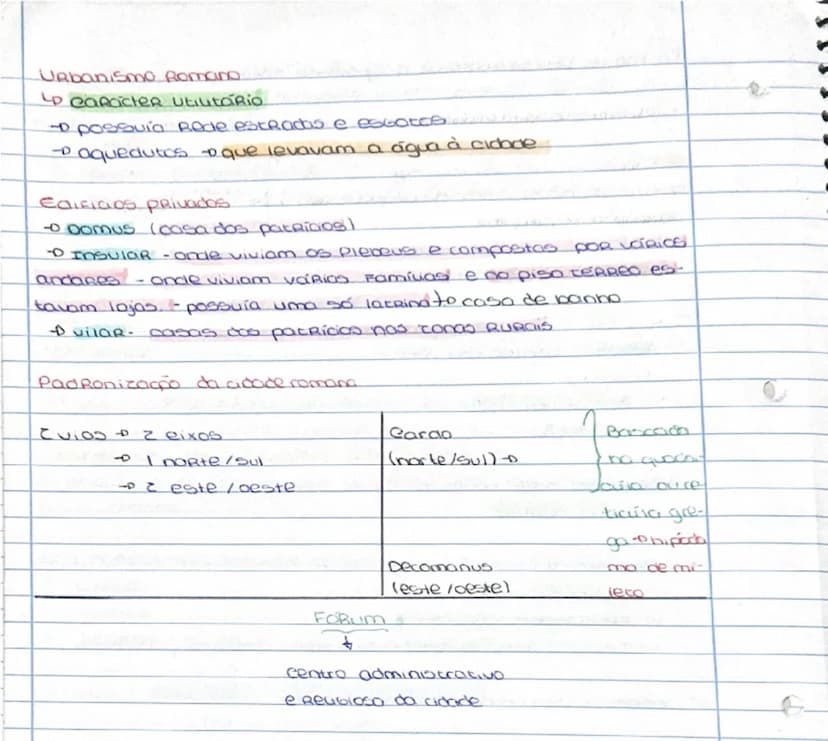 Urbanismo Romano
↳ carácter utilitário
→ possuía rede estradas e esgotos
→ aquedutos → que levavam a água à cidade
Edifícios privados
→ Domus (casa dos patrícios)
→ Insular - onde viviam os plebeus e compostas por vários
andares - onde viviam várias famílias e no piso térreo es-
tavam lojas. - possuía uma só latrina → casa de banho
→ vilar - casas dos patrícios nas zonas rurais
Padronização da cidade romana
2 vias → 2 eixos
→ 1 norte/sul
→ 2 este/oeste
Cardo
(norte/sul) →
Decomanus
(este/oeste)
Baseada
na quadri-
ticula gre-
ga → hipóda
mo de mi-
leto
Forum
↓
centro administrativo
e religioso da cidade